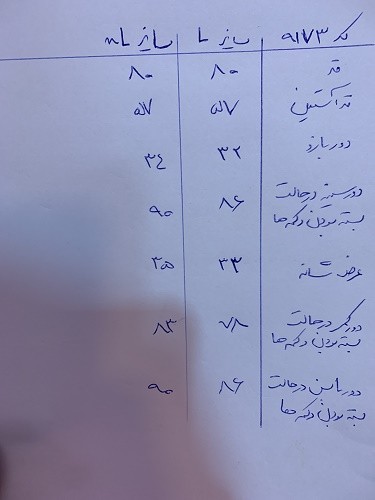 کد ۹۱۷۳ سایز L سایز XL
قد ۸۰ ۸۰
قد آستین ۵۷ ۵۷
دور بازو ۳۲ ۳۴
دور سینه در حالت ۸۶ ۹۰
بسته بودن دکمه ها
عرض شانه ۳۳ ۳۵
دور کمر در حالت ۷۸ ۸۳
بسته بودن دکمه ها
دور باسن در حالت ۸۶ ۹۰
بسته بودن دکمه ها